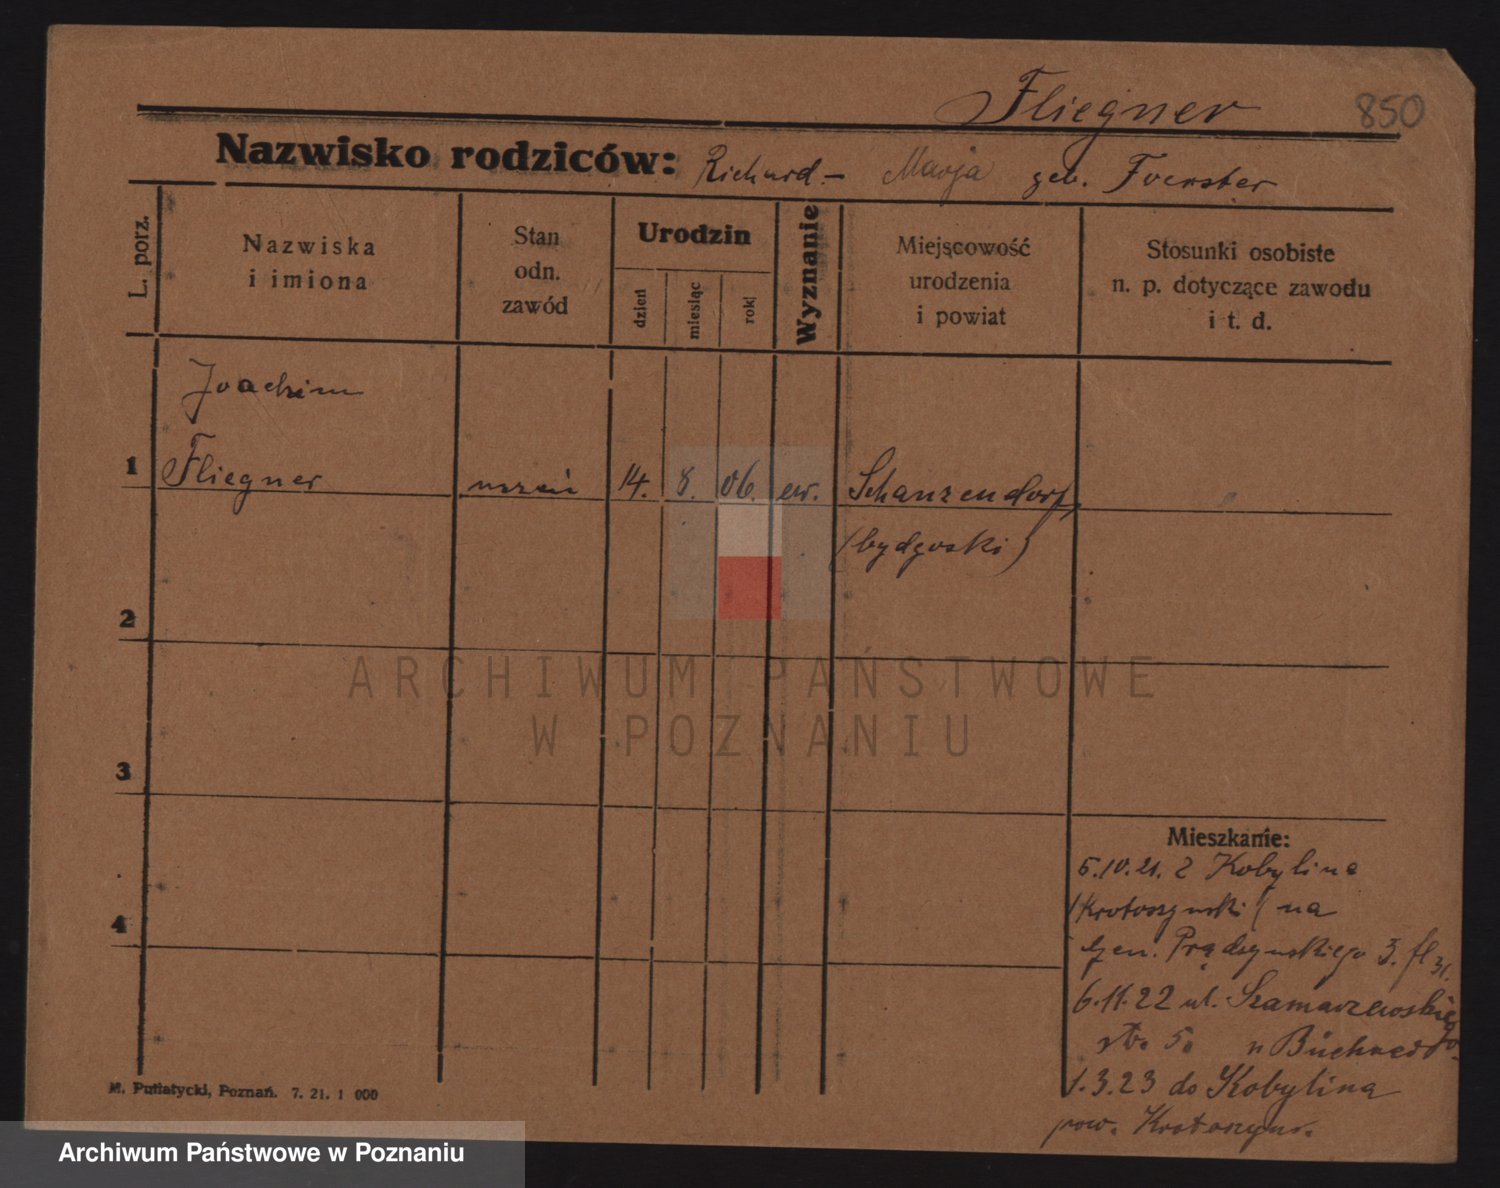 Fliegner
850
Nazwisko rodziców: Richard - Marja geb. Foerster
L. porz.
Nazwiska
i imiona
Stan
odn.
zawód
Urodzin
dzień
miesiąc
rok
Wyznanie
Miejscowość
urodzenia
i powiat
Stosunki osobiste
n. p. dotyczące zawodu
i t. d.
Joachim
1 Fliegner uczeń 14. 8. 06. ew. Schanzendorf,
(bydgoski)
2
3
4
ARCHIWUM PAŃSTWOWE
W POZNANIU
Mieszkanie:
5.10.21. z Kobylina
(Krotoszynski) na
Gen. Prądzynskiego 3.
6.11.22 ul. Szamarzewskiego
str. 5. u Büchner
1.3.23 do Kobylina
pow. Krotoszyn.
M. Putiatycki, Poznań. 7. 21. 1 000
Archiwum Państwowe w Poznaniu